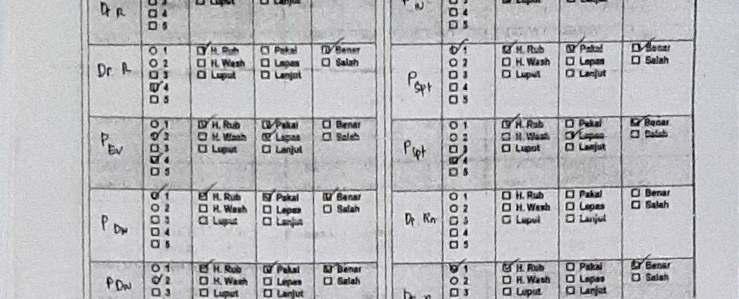 Dr R
□ 4
□ 5
N
□ 4
□ 5
Dr. R
○ 1 ☑ H. Rub □ Pakai ☑ Benar
○ 2 □ H. Wash □ Lepas □ Salah
□ 3 □ Luput □ Lanjut
☑ 4
□ 5
P Spt
☑ 1 ☑ H. Rub ☑ Pakai ☑ Benar
○ 2 □ H. Wash □ Lepas □ Salah
□ 3 □ Luput □ Lanjut
□ 4
□ 5
P Ev
○ 1 ☑ H. Rub ☑ Pakai □ Benar
☑ 2 □ H. Wash ☑ Lepas □ Salah
□ 3 □ Luput □ Lanjut
☑ 4
□ 5
P Spt
○ 1 ☑ H. Rub □ Pakai ☑ Benar
○ 2 □ H. Wash ☑ Lepas □ Salah
□ 3 □ Luput □ Lanjut
☑ 4
□ 5
P DW
☑ 1 ☑ H. Rub ☑ Pakai ☑ Benar
○ 2 □ H. Wash □ Lepas □ Salah
□ 3 □ Luput □ Lanjut
□ 4
□ 5
Dr Rn
○ 1 □ H. Rub □ Pakai □ Benar
○ 2 □ H. Wash □ Lepas □ Salah
□ 3 □ Luput □ Lanjut
□ 4
□ 5
P DW
○ 1 ☑ H. Rub ☑ Pakai ☑ Benar
☑ 2 □ H. Wash □ Lepas □ Salah
□ 3 □ Luput □ Lanjut
☑ 1 ☑ H. Rub □ Pakai ☑ Benar
○ 2 □ H. Wash □ Lepas □ Salah
□ 3 □ Luput □ Lanjut